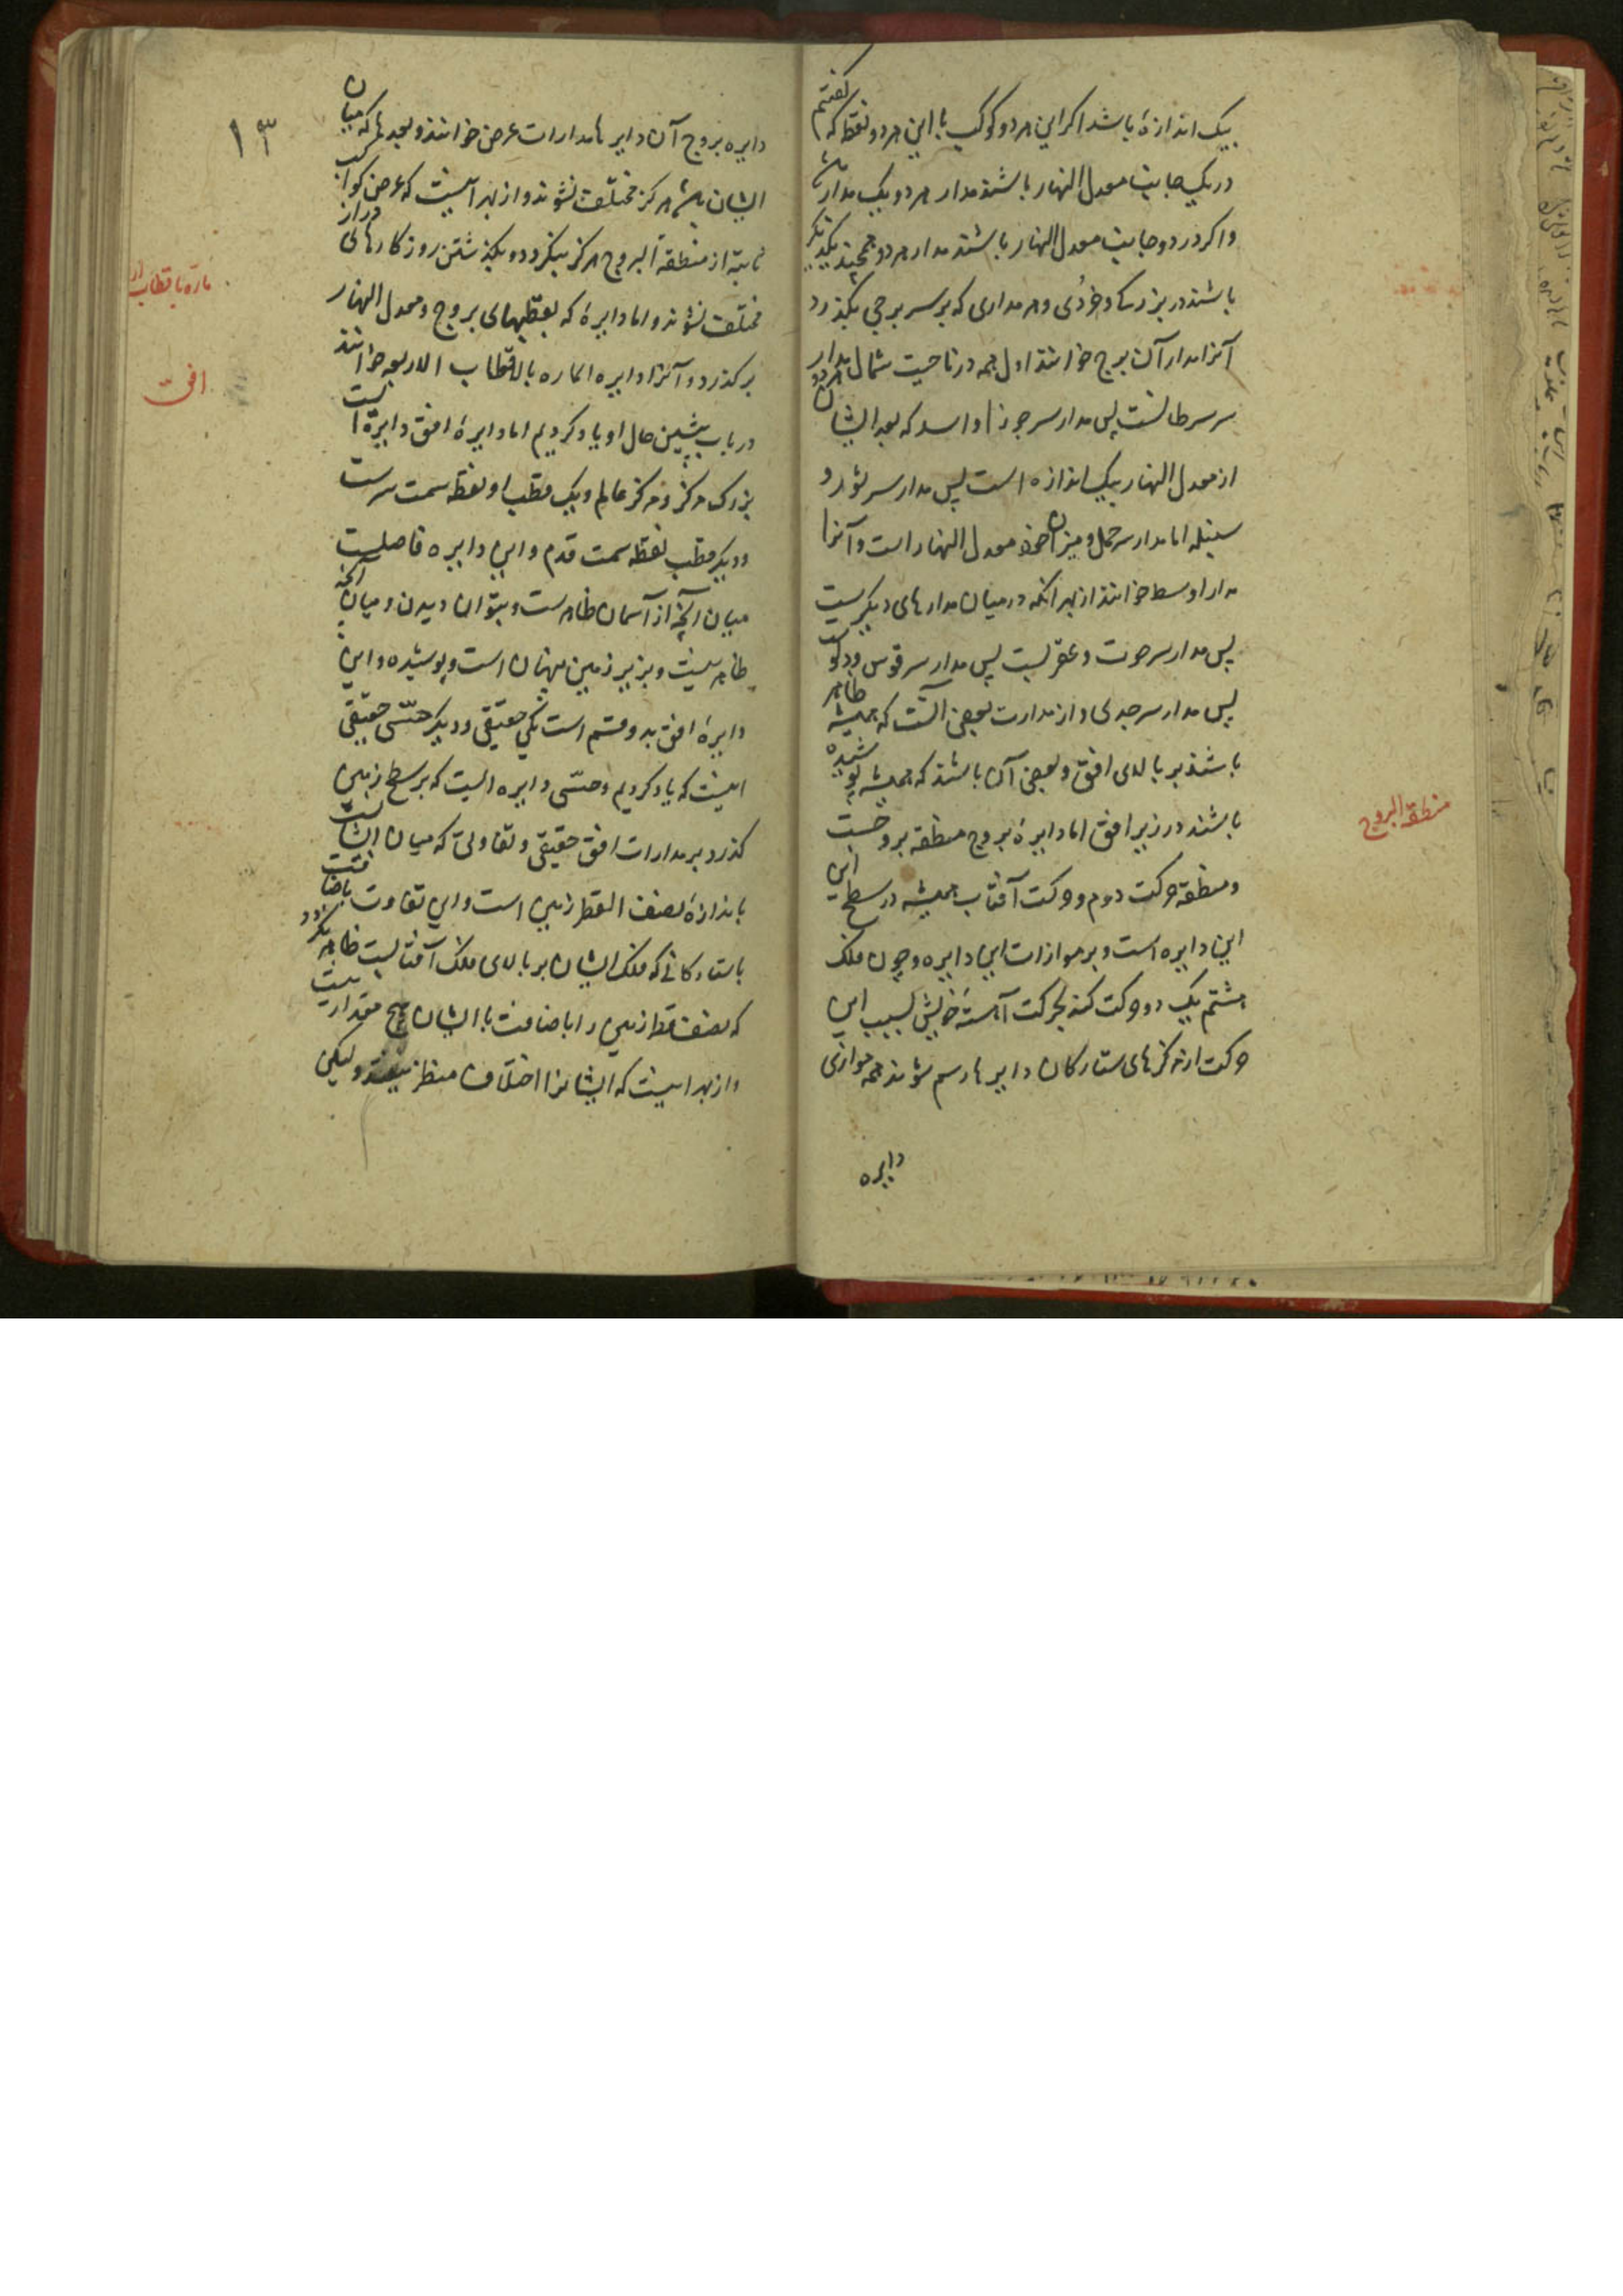 بیک اندازهٔ باشد اکر این هر دو کوکب یا این هر دو نقطه که کفتیم
در یک جانب معدل النهار باشند مدار هر دو یک مدار باشد
و اکر در دو جانب معدل النهار باشند مدار هر دو همچند یکدیکر
باشند در بزرکی و خردُی و هر مداری که بر سر برجی بکذرد
آنرا مدار آن برج خوانند اول همه در ناحیت شمال مدار
سر سرطانست پس مدار سر جوزا و اسد که بعد ایشان هر دو
از معدل النهار بیک اندازه است پس مدار سر ثور و
سنبله اما مدار سر حمل و میزان خود معدل النهار است و آنرا
مدار اوسط خوانند از بهر انکه در میان مدارهای دیکرست
پس مدار سر حوت و عقربست پس مدار سر قوس و دلو
پس مدار سر جدی و از مدارت بعضی آنست که همیشه ظاهر
باشند بر بالای افق و بعضی آن باشند که همیشه پوشیده
باشند در زیر افق اما دایرهٔ بروج منطقه بروجست
منطقة البروج
و منطقه حرکت دوم و حرکت آفتاب همیشه در سطح این
این دایره است و بر موازات این دایره و چون فلک
هشتم یک دو حرکت کند بحرکت آهستهٔ خویش بسبب این
حرکت از مرکزهای ستارکان دایرها رسم شوند همه موازی
دایره
۱۳
دایره بروج آن دایرها مدارات عرض خوانند و بعدها که میان
ایشان باشد هرکز مختلف نشوند و از بهر اینست که عرض کواکب
ثابته از منطقة البروج هرکز بنکردد و بکذشتن روزکارهای دراز
مارّه باقطاب اربعه
مختلف نشوند و اما دایرهٔ که بقطبهای بروج و معدل النهار
برکذرد و آنرا دایره الماره بالاقطاب الاربعه خوانند
افق
در باب پیشین حال او یاد کردیم اما دایرهٔ افق دایرهٔ است
بزرک مرکز و مرکز عالم و یک قطب او نقطه سمت سرست
و دیکر قطب نقطه سمت قدم و این دایره فاصلست
میان آنچه از آسمان ظاهرست و بتوان دیدن و میان آنچه
ظاهر نیست و بزیر زمین پنهان است و پوشیده و این
دایرهٔ افق بدو قسم است یکی حقیقی و دیکر حسّی حقیقی
اینست که یاد کردیم و حسّی دایره ایست که بر سطح زمین
کذرد بر مدارات افق حقیقی و تفاوتی که میان ایشانست
باندازهٔ نصف القطر زمین است و این تفاوت باضافت
باستارکانی که فلک ایشان بر بالای فلک آفتابست ظاهر نکردد
که نصف قطر زمین را باضافت با ایشان هیچ مقدار نیست
و از بهر اینست که ایشانرا اختلاف منظر نیفتد و لیکن